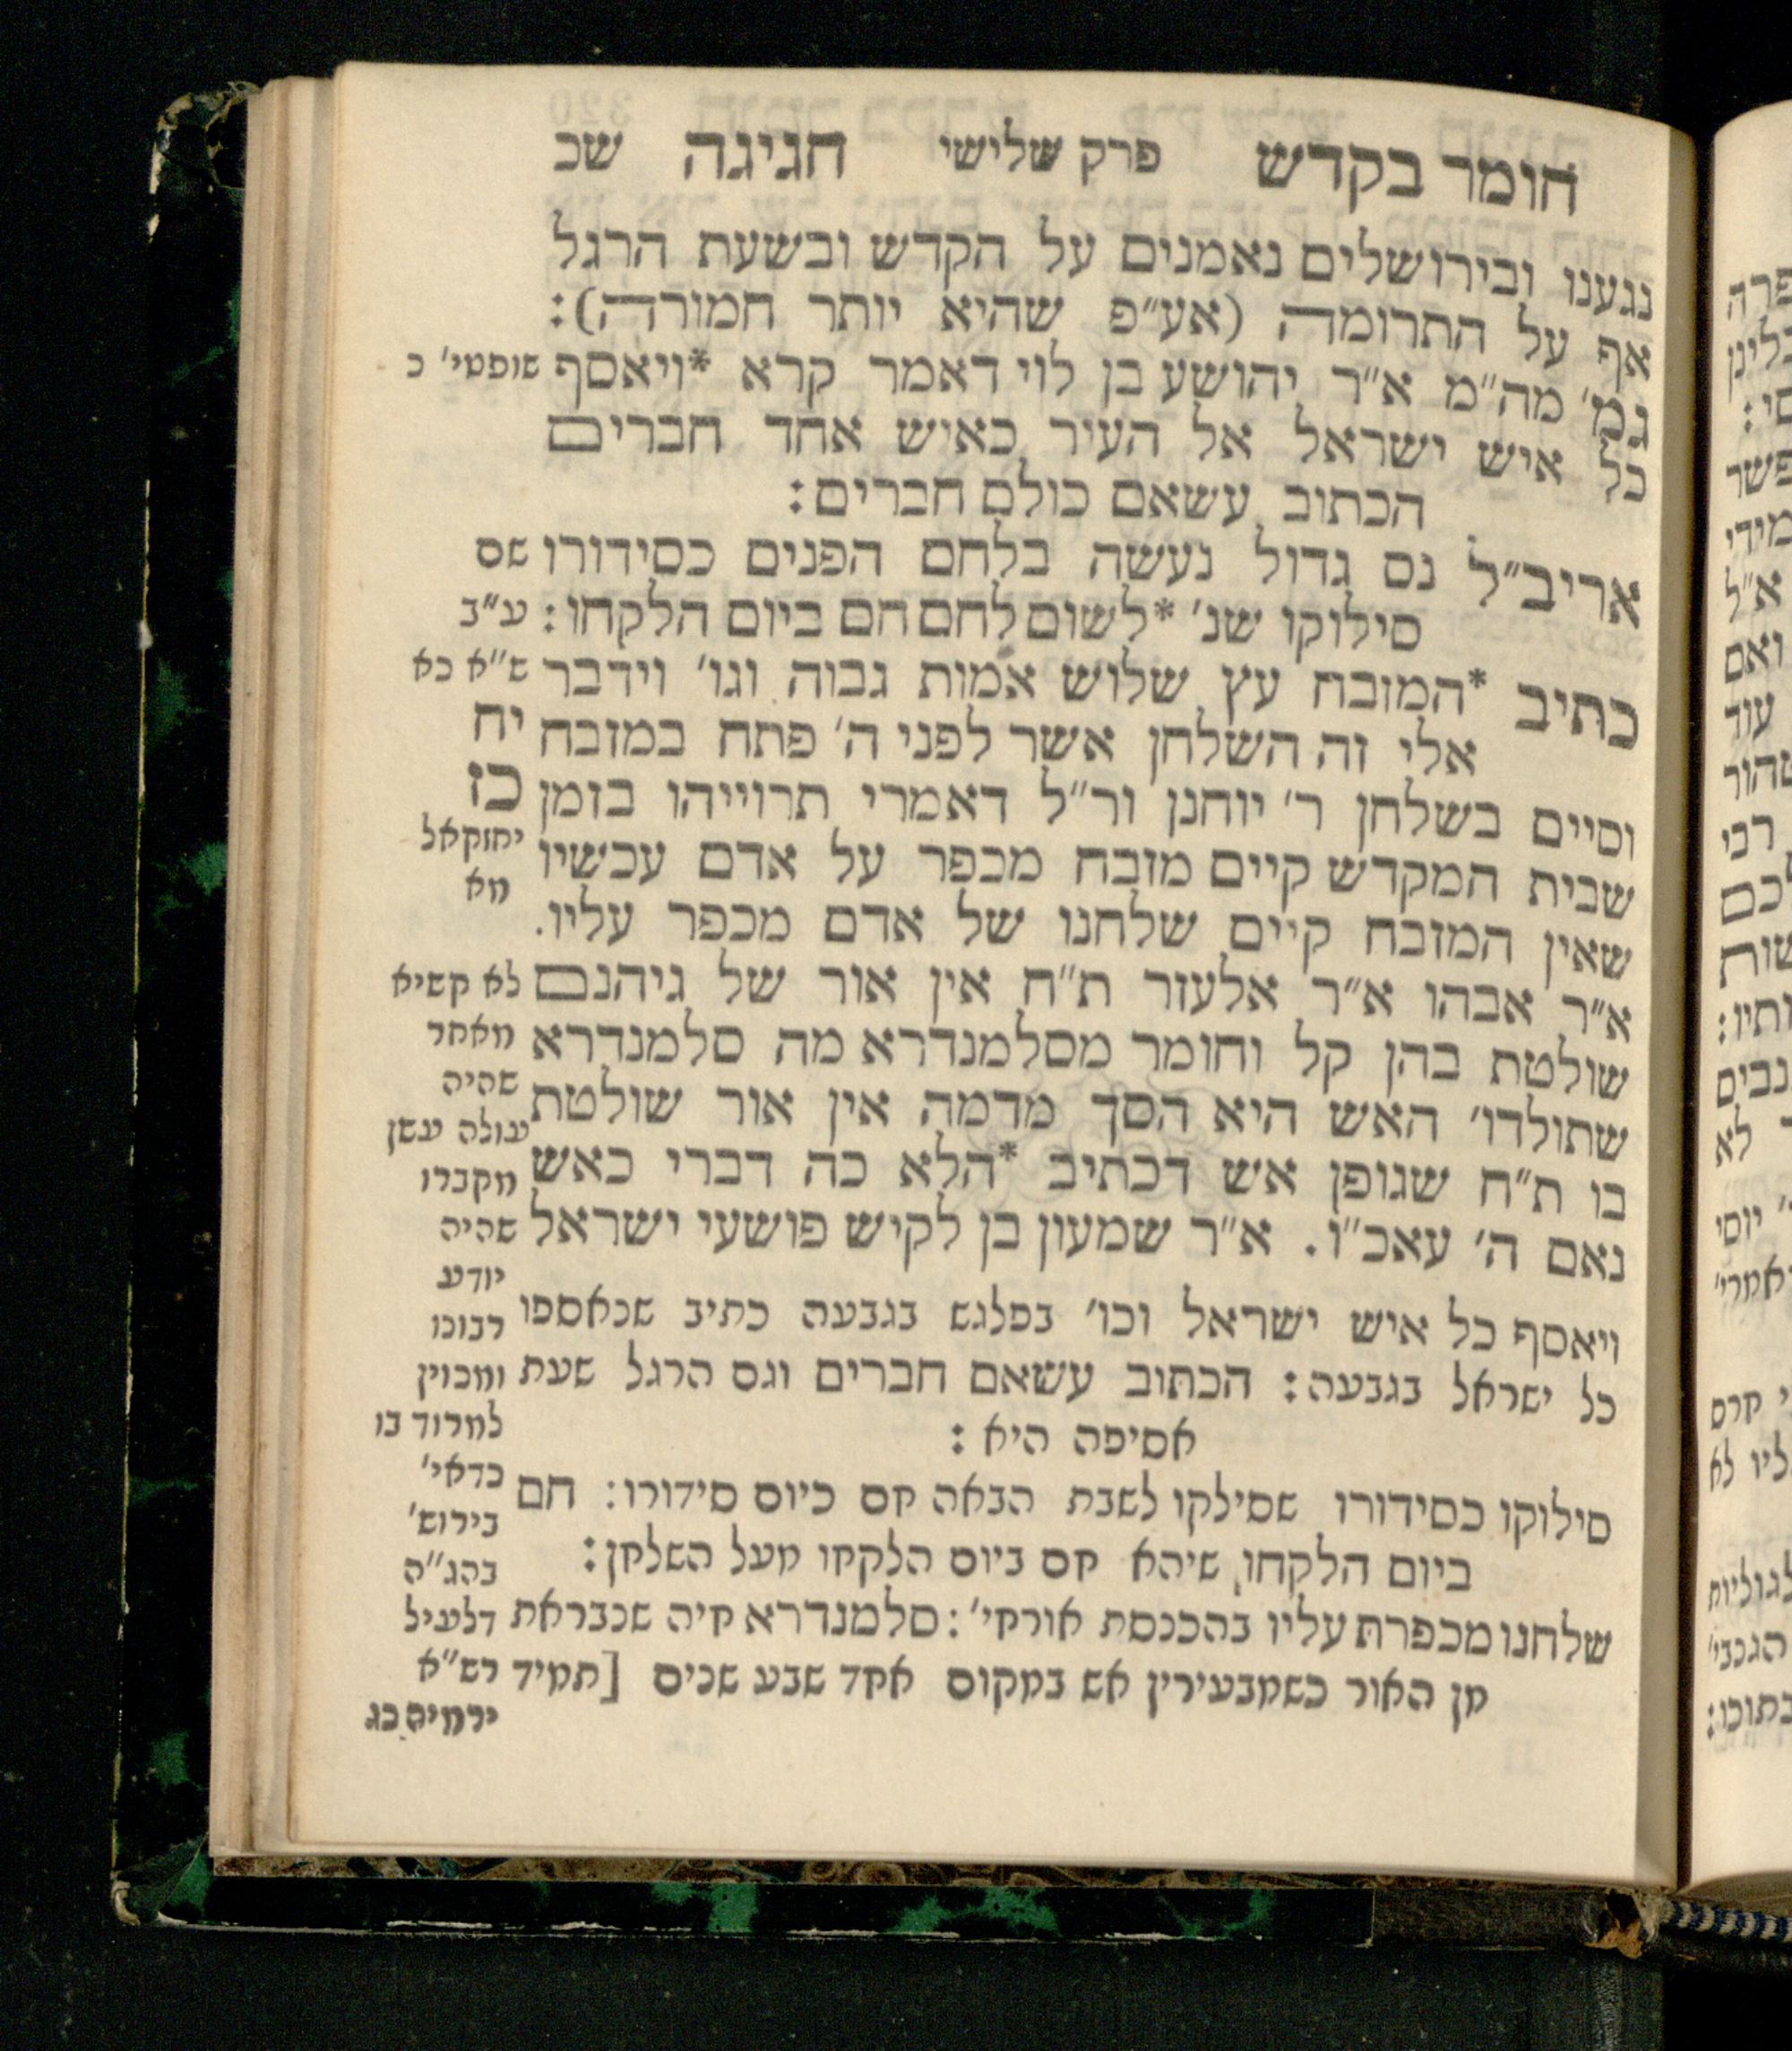 חומר בקדש פרק שלישי חגיגה שכ
נגענו ובירושלים נאמנים על הקדש ובשעת הרגל
אף על התרומה (אע״פ שהיא יותר חמורה):
גמ׳ מה״מ א״ר יהושע בן לוי דאמר קרא *ויאסף
כל איש ישראל אל העיר כאיש אחד חברים
הכתוב עשאם כולם חברים:
אריב״ל נס גדול נעשה בלחם הפנים כסידורו
סילוקו שנ׳ *לשום לחם חם ביום הלקחו:
כתיב *המזבח עץ שלוש אמות גבוה וגו׳ וידבר
אלי זה השלחן אשר לפני ה׳ פתח במזבח
וסיים בשלחן ר׳ יוחנן ור״ל דאמרי תרוייהו בזמן
שבית המקדש קיים מזבח מכפר על אדם עכשיו
שאין המזבח קיים שלחנו של אדם מכפר עליו.
א״ר אבהו א״ר אלעזר ת״ח אין אור של גיהנם
שולטת בהן קל וחומר מסלמנדרא מה סלמנדרא
שתולדו׳ האש היא הסך מדמה אין אור שולטת
בו ת״ח שגופן אש דכתיב *הלא כה דברי כאש
נאם ה׳ עאכ״ו. א״ר שמעון בן לקיש פושעי ישראל
ויאסף כל איש ישראל וכו׳ בפלגש בגבעה כתיב שנאספו
כל ישראל בגבעה: הכתוב עשאם חברים וגם הרגל שעת
אסיפה היא:
סילוקו כסידורו שסילקו לשבת הבאה חם כיום סידורו: חם
ביום הלקחו שיהא חם ביום הלקחו מעל השלחן:
שלחנו מכפרת עליו בהכנסת אורחי׳: סלמנדרא חיה שנבראת
מן האור כשמבעירין אש במקום אחד שבע שנים [תמיד
שופטי׳ כ
שם
ע״ב
ש״א כא
יח
כז
יחזקאל
מא
לא קשיא
מאחר
שהיה
עולה עשן
מקברו
שהיה
יודע
רבונו
ומכוין
למרוד בו
כדאי׳
בירוש׳
בהג״ה
דלעיל
רש״א
ירמיה כג